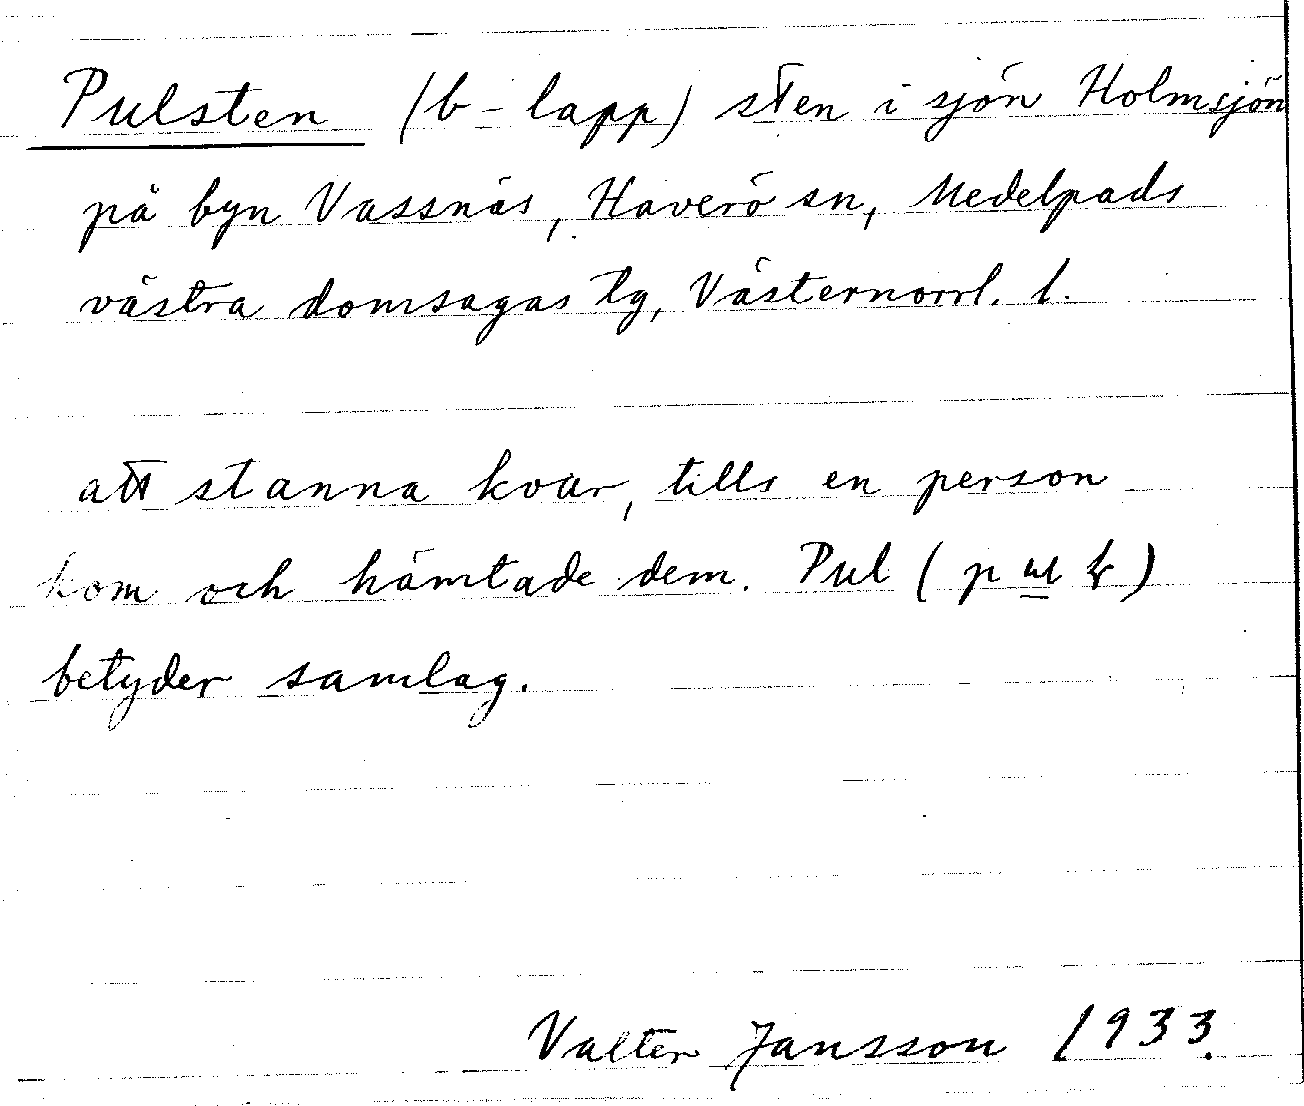 Pulsten (b-lapp) sten i sjön Holmsjön
på byn Vassnäs, Haverö sn, Medelpads
västra domsagas tg, Västernorrl. l.
att stanna kvar, tills en person
kom och hämtade dem. Pul
betyder samlag.
Valter Jansson 1933.